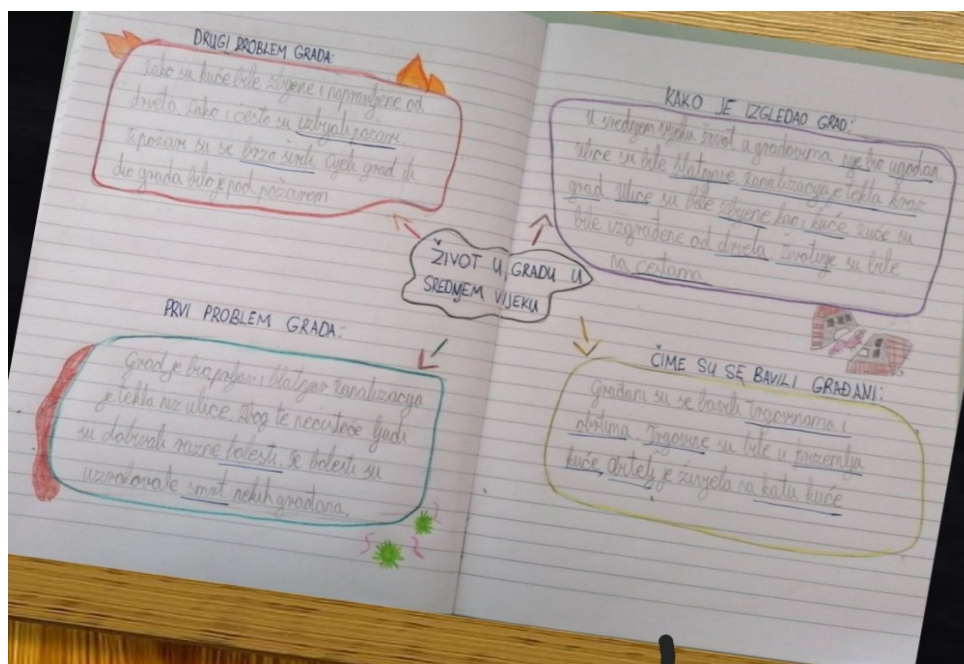 DRUGI PROBLEM GRADA:
Kako su kuće bile zbijene i napravljene od
drveta. Lako i često su izbijali požari.
Ti požari su se brzo širili. Cijeli grad ili
dio grada bilo je pod požarom
KAKO JE IZGLEDAO GRAD:
U srednjem vijeku život u gradovima nije bio ugodan
Ulice su bile blatnjave kanalizacija je tekla kroz
grad. Ulice su bile zbijene kao i kuće. Kuće su
bile izgrađene od drveta. Životinje su bile
na cestama
ŽIVOT U GRADU U
SREDNJEM VIJEKU
PRVI PROBLEM GRADA:
Grad je bio prljav i blatnjav kanalizacija
je tekla niz ulice. Zbog te nečistoće ljudi
su dobivali razne bolesti. Te bolesti su
uzrokovale smrt nekih građana.
ČIME SU SE BAVILI GRAĐANI:
Građani su se bavili trgovinama i
obrtima. Trgovine su bile u prizemlju
kuće, obitelj je živjela na katu kuće